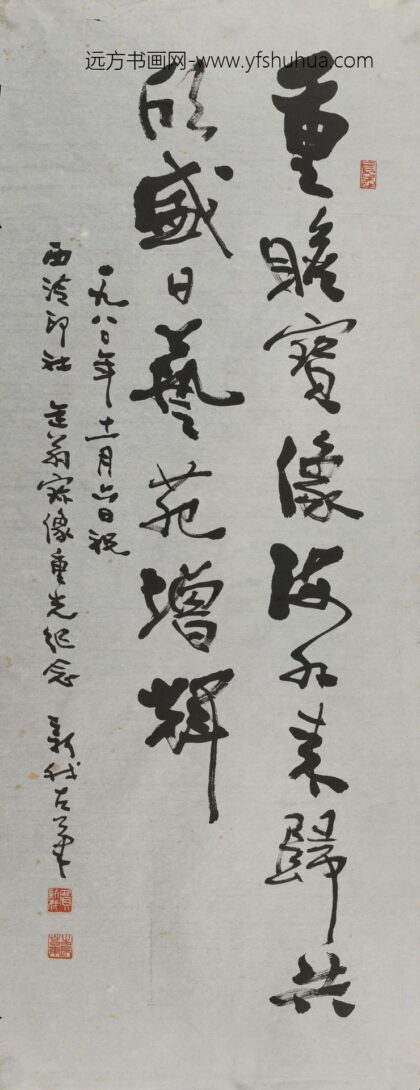 远方书画网-www.yfshuhua.com
重瞻寶像海外来歸共
欣盛日藝苑增輝
一九八〇年十一月六日祝
西泠印社 缶翁像重光纪念 新我左笔